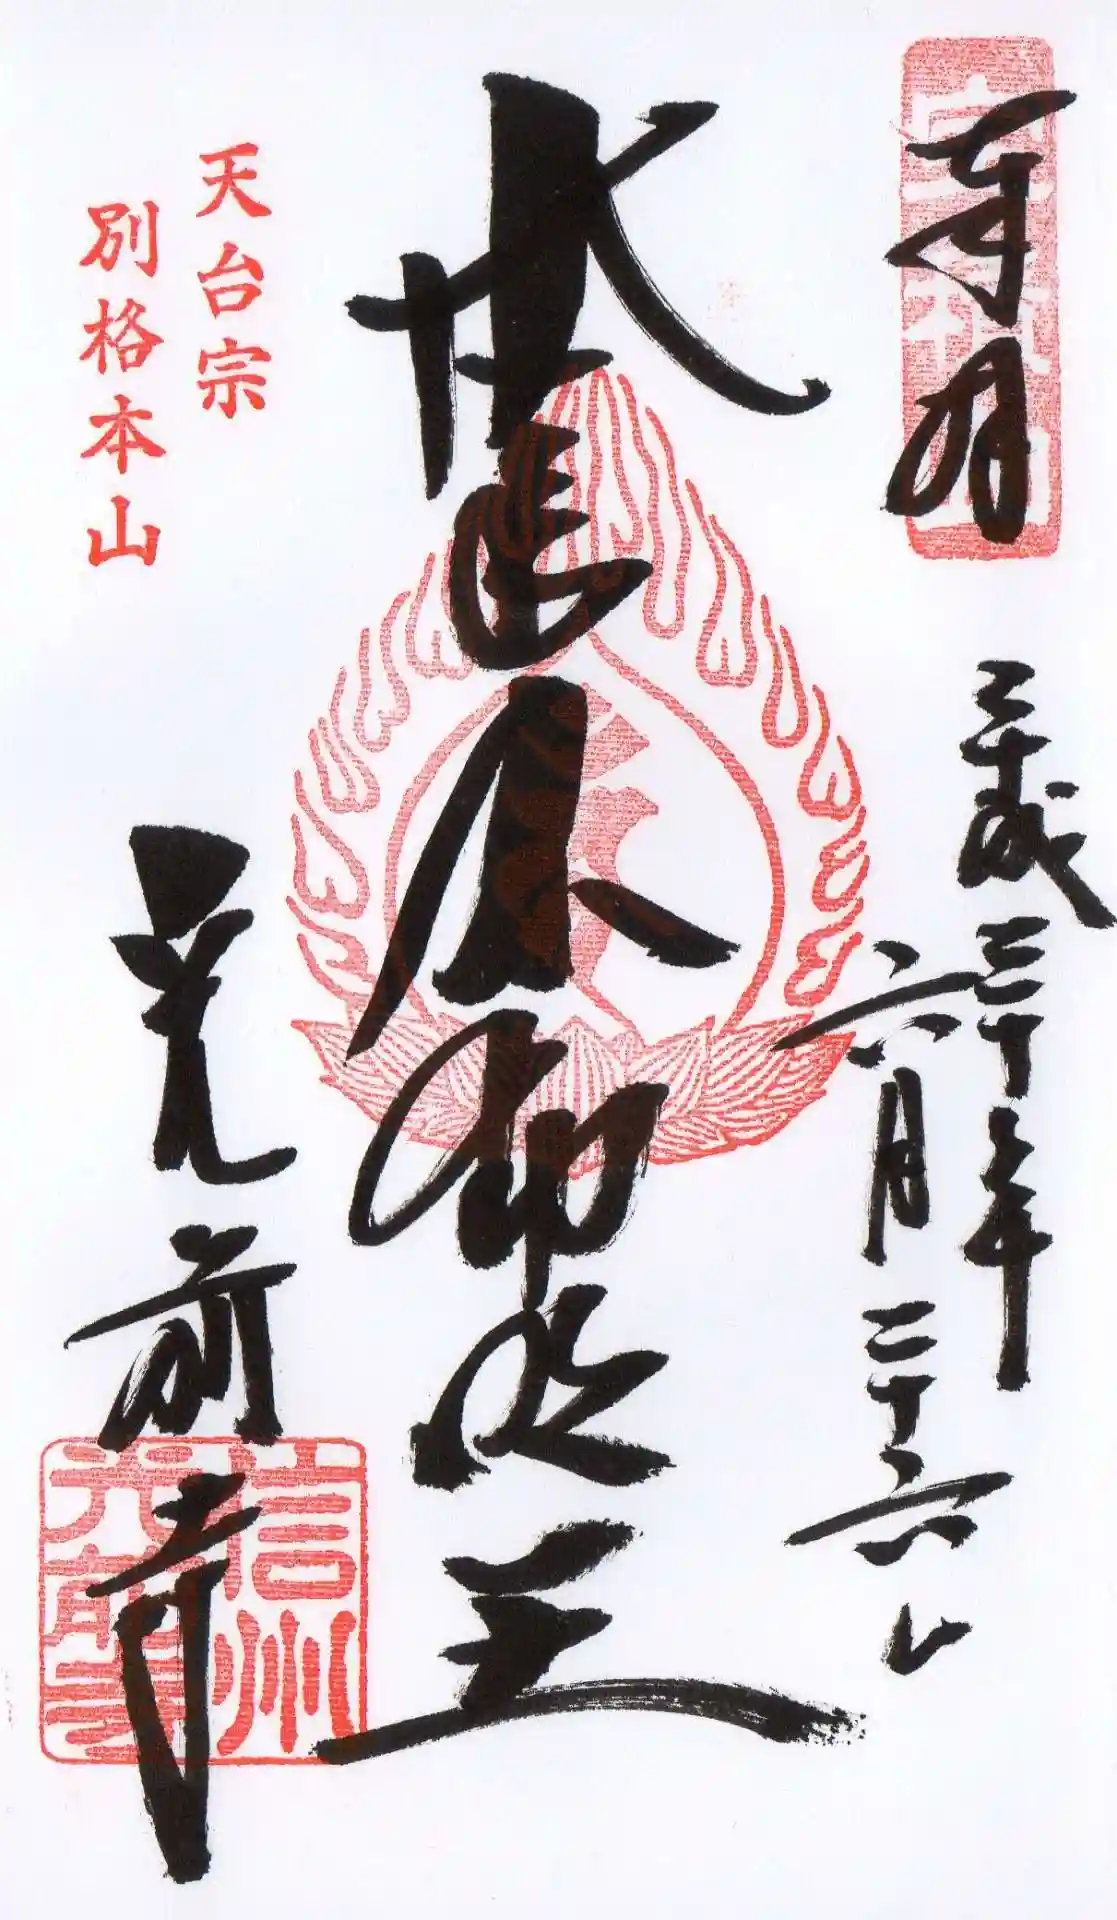 奉拝
宝積山
平成三十年
六月二十六日
不動明王
天台宗
別格本山
光前寺
信州
光前寺